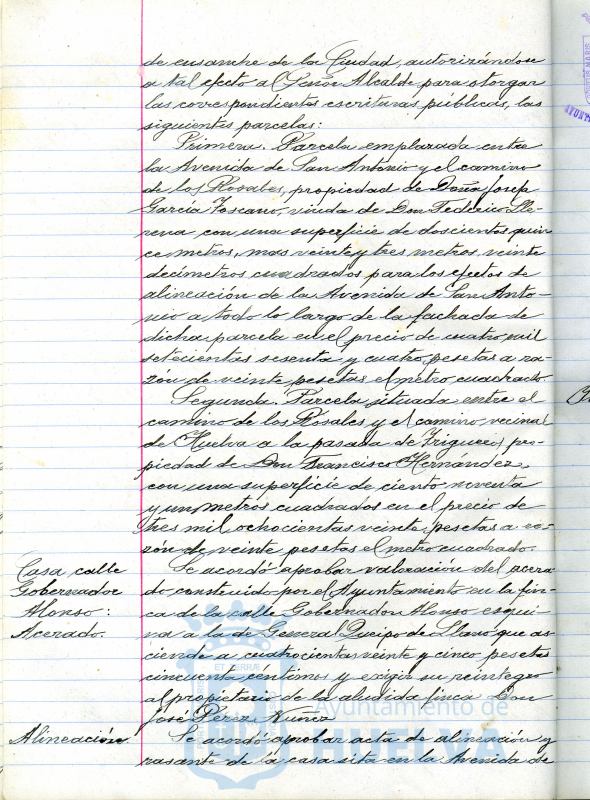 de ensanche de la Ciudad, autorizándose
a tal efecto al Señor Alcalde para otorgar
las correspondientes escrituras públicas, las
siguientes parcelas:
Primera. Parcela emplazada entre
la Avenida de San Antonio y el camino
de los Rosales, propiedad de Doña Josefa
García Toscano, viuda de Don Federico Llo-
rena con una superficie de doscientos quin
ce metros, mas veinte y tres metros, veinte
decímetros cuadrados para los efectos de
alineación de la Avenida de San Anto-
nio a todo lo largo de la fachada de
dicha parcela en el precio de cuatro mil
setecientas sesenta y cuatro pesetas a ra-
zón de veinte pesetas el metro cuadrado.
Segunda. Parcela situada entre el
camino de los Rosales y el camino vecinal
de Huelva a la pasada de pro-
piedad de Don Francisco Hernández,
con una superficie de ciento noventa
y un metros cuadrados en el precio de
tres mil ochocientas veinte pesetas a ra-
zón de veinte pesetas el metro cuadrado.
Casa, calle
Gobernador
Alonso:
Acerado.
Se acordó aprobar valoración del acera
do construido por el Ayuntamiento en la fin-
ca de la calle Gobernador Alonso esqui-
na a la de General Queipo de Llano que as-
ciende a cuatrocientas veinte y cinco pesetas
cincuenta céntimos y exigir su reintegro
al propietario de la aludida finca Don
José Pérez Nuñez
Alineación.
Se acordó aprobar acta de alineación y
rasante de la casa sita en la Avenida de
Ayuntamiento de
HUELVA